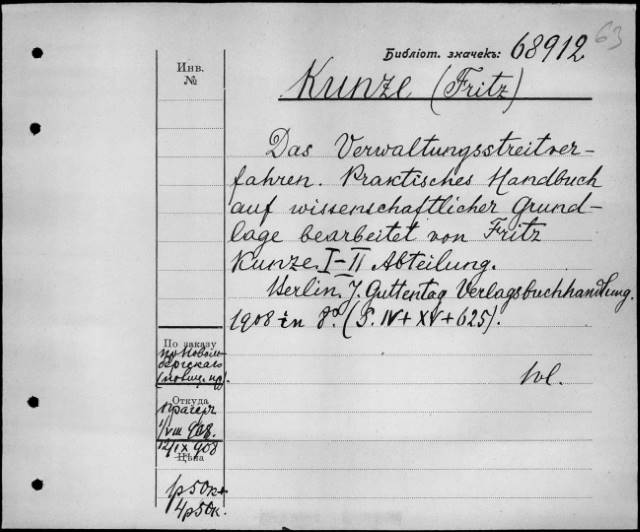 63
Библіот. значекъ: 68912
Инв.
№
Kunze (Fritz)
Das Verwaltungsstreitver-
fahren. Praktisches Handbuch
auf wissenschaftlicher Grund-
lage bearbeitet von Fritz
Kunze I-II Abteilung.
Berlin. J. Guttentag Verlagsbuchhandlung.
1908 in 8° (S. IV+XV+625).
1vl.
По заказу
Откуда
1/VIII 908.
12/IX 908
Цѣна
1р50к+
4р50к.